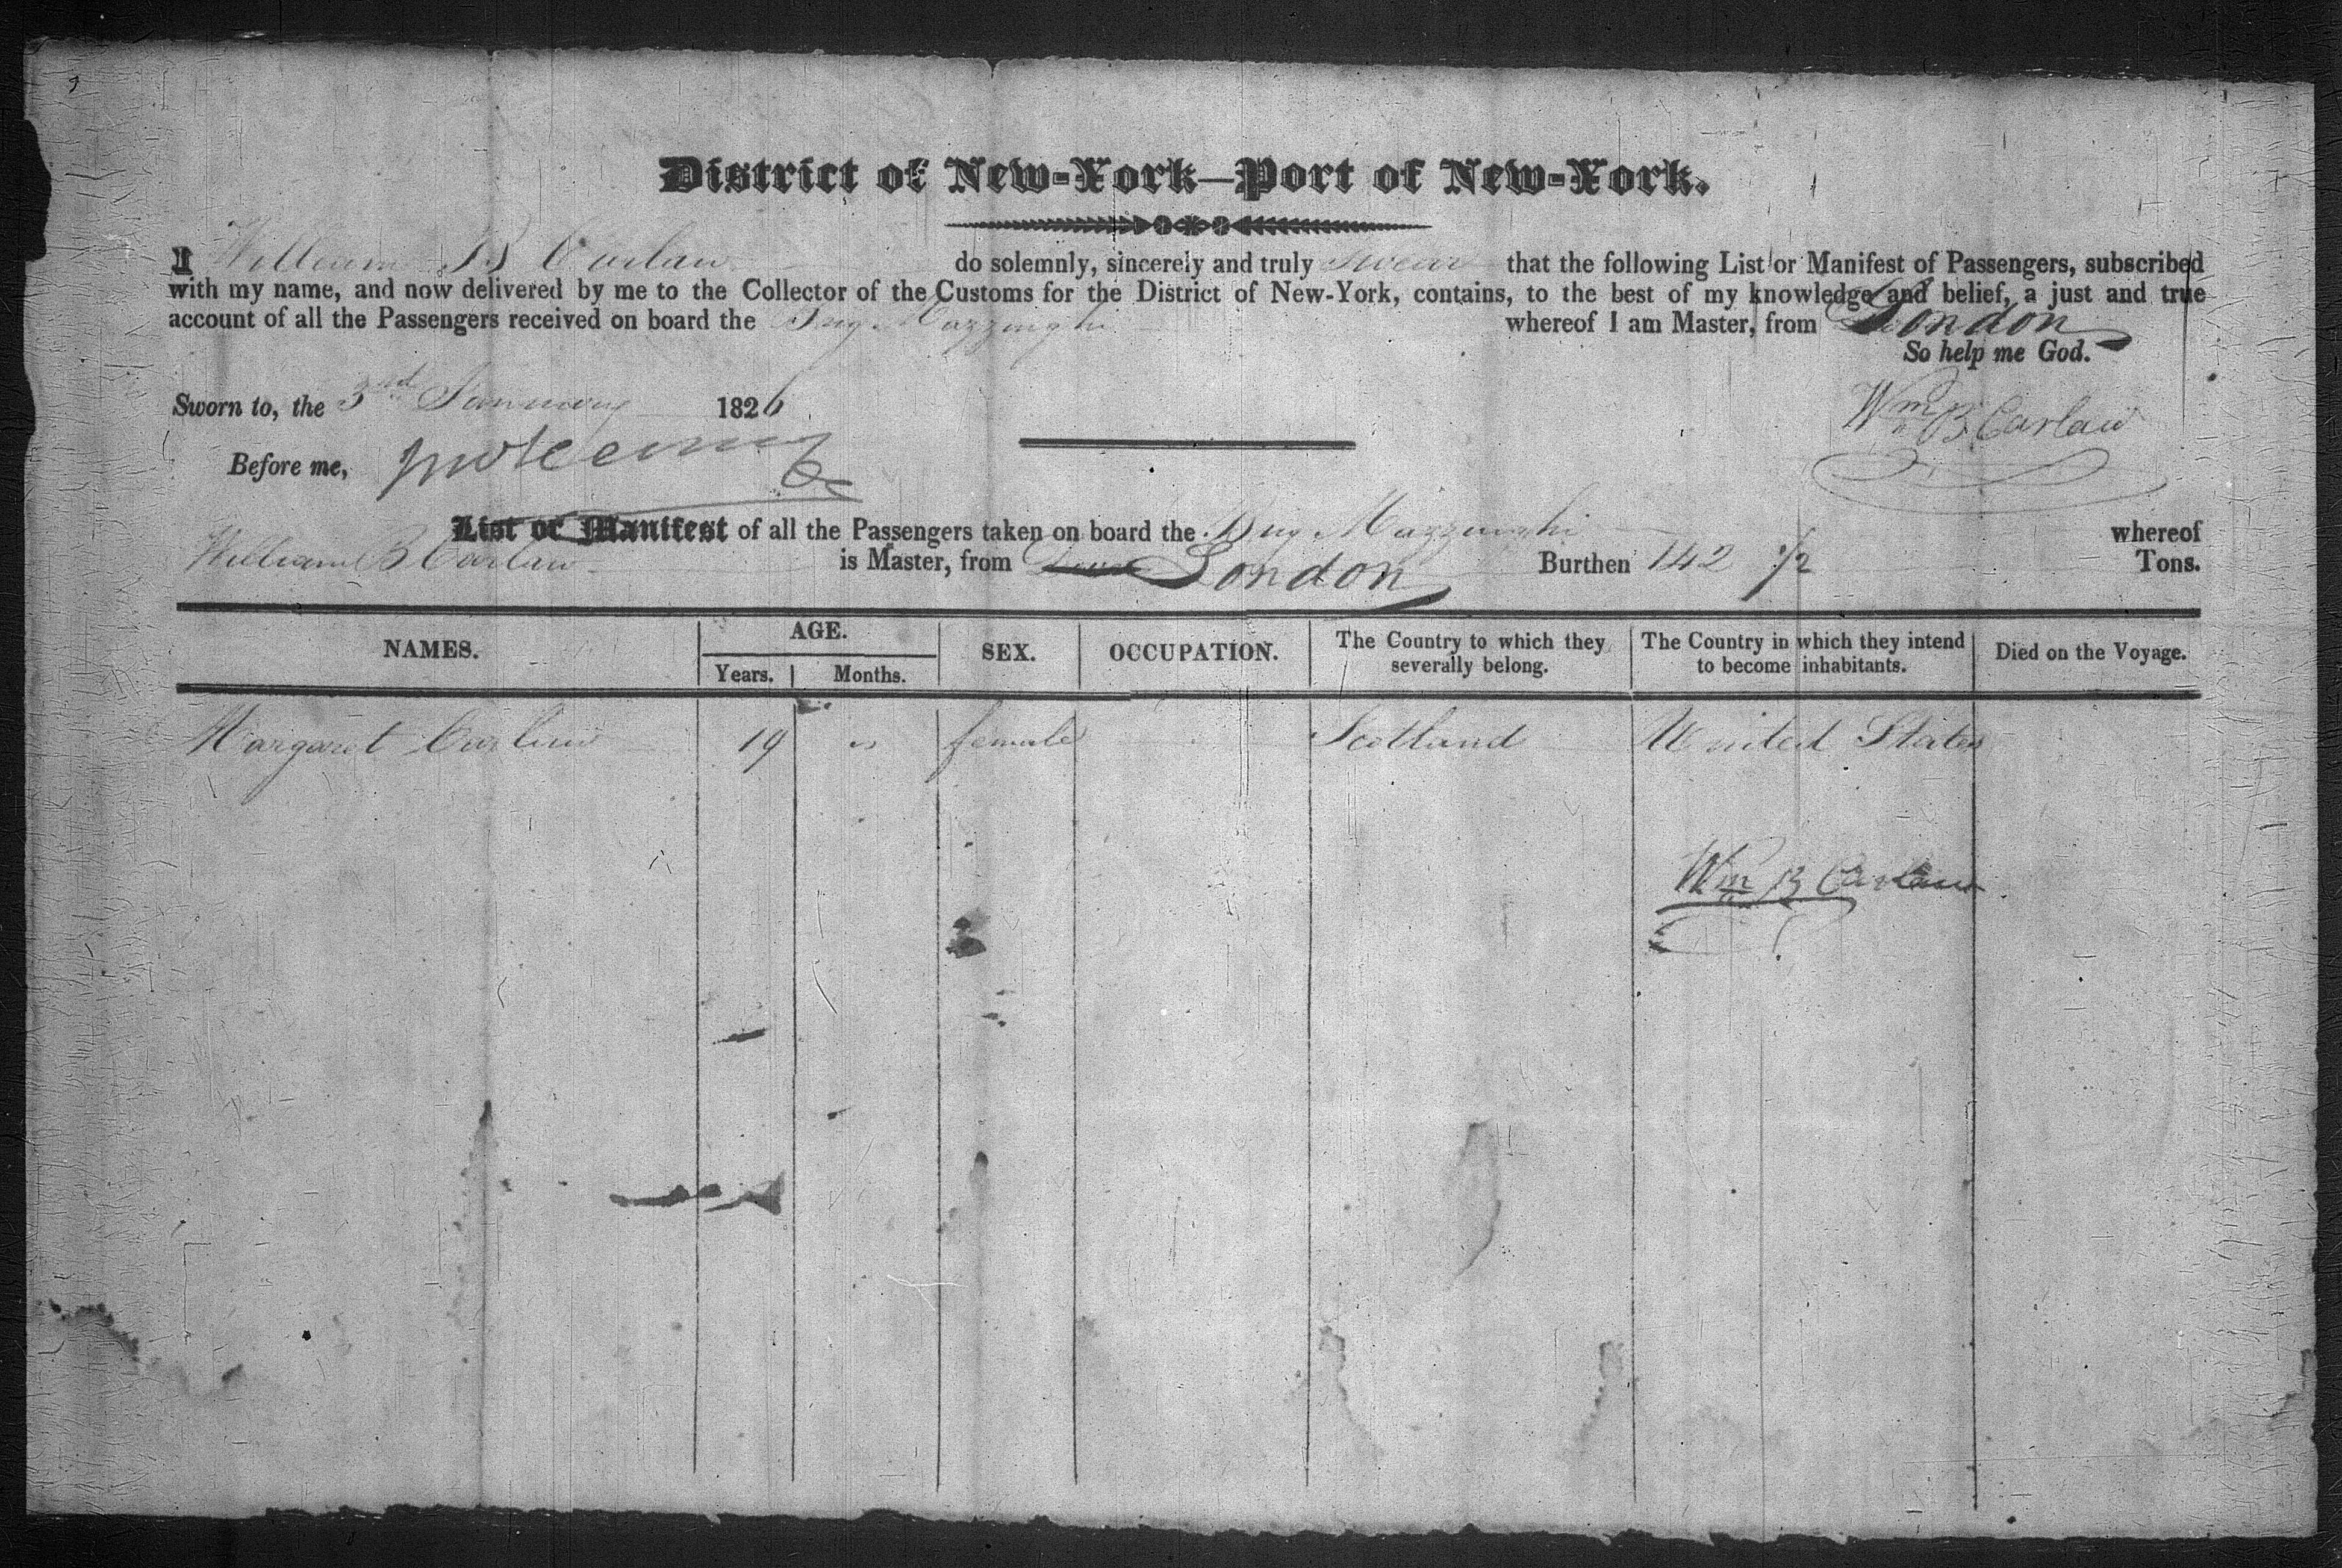 District of New-York—Port of New-York.
I William B Carlaw do solemnly, sincerely and truly swear that the following List or Manifest of Passengers, subscribed
with my name, and now delivered by me to the Collector of the Customs for the District of New-York, contains, to the best of my knowledge and belief, a just and true
account of all the Passengers received on board the Brig Mazzinghi whereof I am Master, from London
So help me God.
Sworn to, the 3rd January 1826
Wm B Carlaw
Before me,
List or Manifest of all the Passengers taken on board the Brig Mazzinghi whereof
William B Carlaw is Master, from London Burthen 142 1/2 Tons.
NAMES. AGE. SEX. OCCUPATION. The Country to which they severally belong. The Country in which they intend to become inhabitants. Died on the Voyage.
Years. Months.
Margaret Carlaw 19 female Scotland United States
Wm B Carlaw